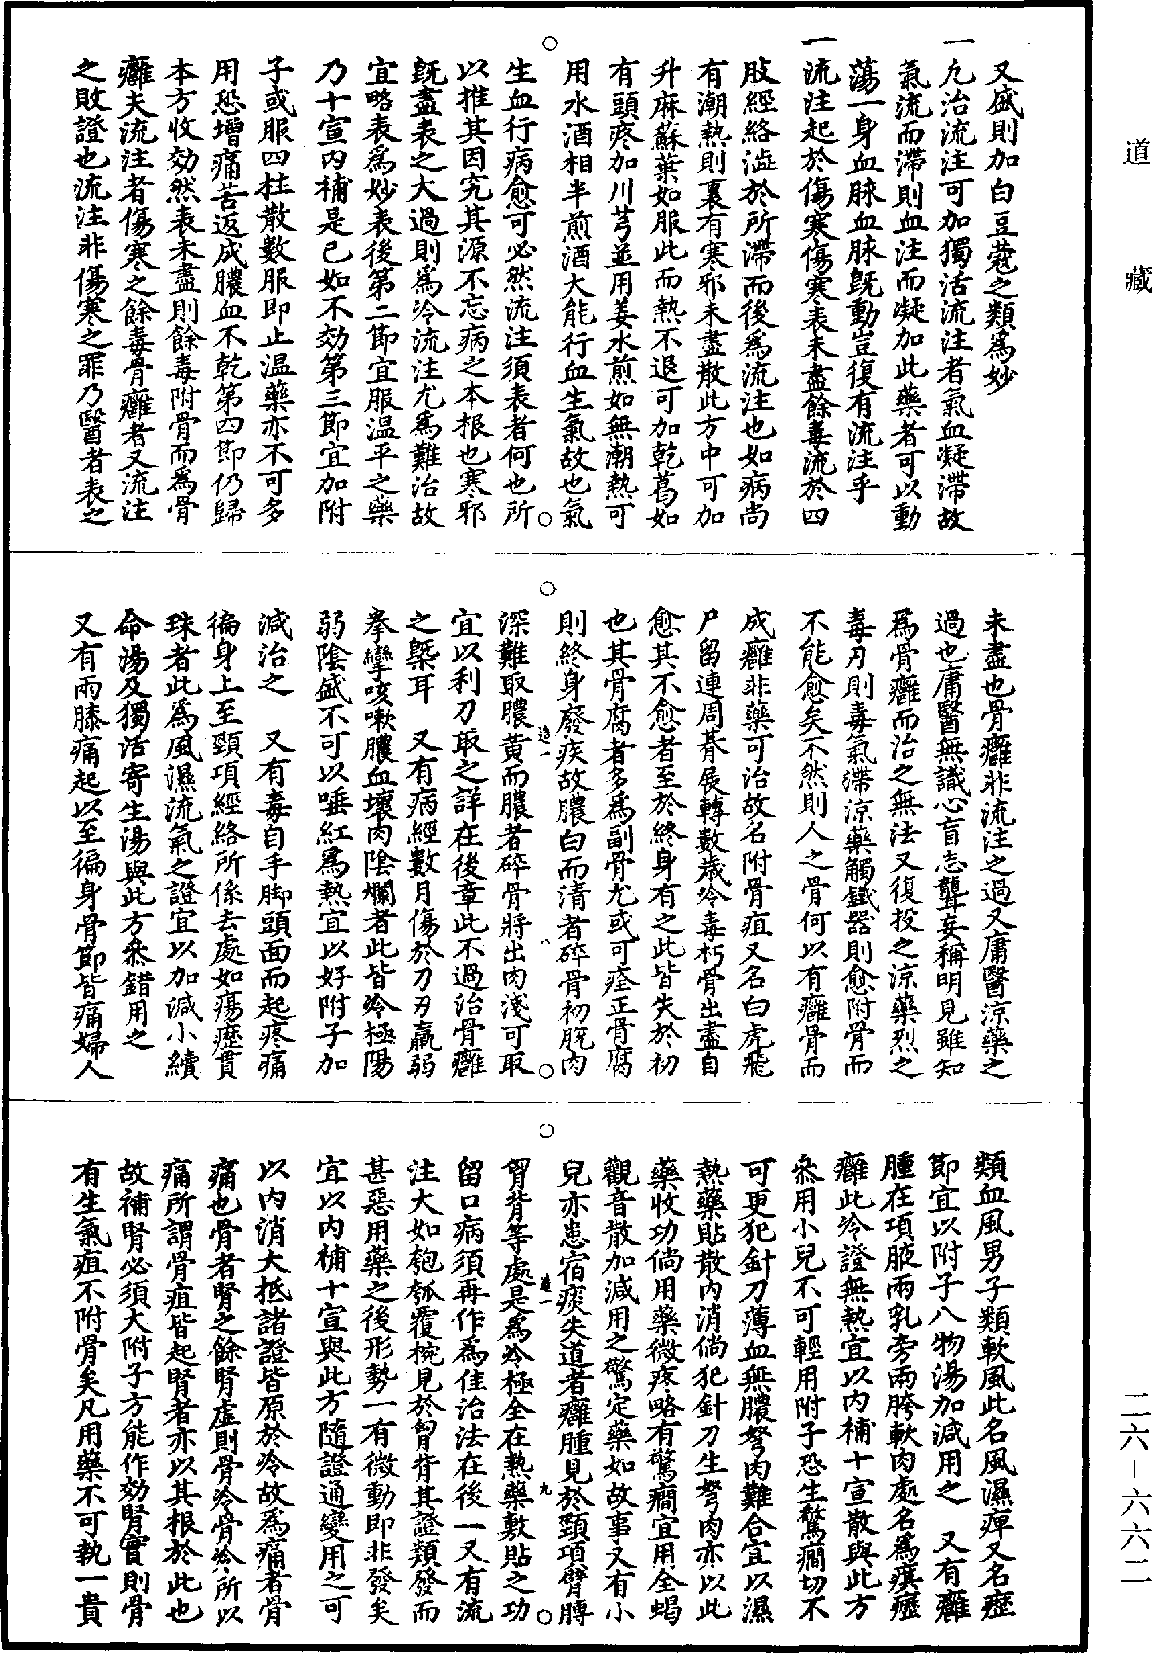 道藏
又盛則加白豆蔻之類為妙
一凢治流注可加獨活流注者氣血凝滯故
氣流而滯則血注而凝加此藥者可以動
蕩一身血脉血脉旣動豈復有流注乎
一流注起於傷寒傷寒表未盡餘毒流於四
肢經絡澁於所滯而後為流注也如病尚
有潮熱則裏有寒邪未盡散此方中可加
升麻蘇葉如服此而熱不退可加乾葛如
有頭疼加川芎並用姜水煎如無潮熱可
用水酒相半煎酒大能行血生氣故也氣
生血行病愈可必然流注須表者何也所
以推其因究其源不忘病之本根也寒邪
旣盡表之大過則為冷流注尤為難治故
宜略表為妙表後第二節宜服溫平之藥
乃十宣内補是已如不効第三節宜加附
子或服四柱散數服即止温藥亦不可多
用恐增痛苦返成膿血不乾第四節仍歸
本方收効然表未盡則餘毒附骨而為骨
癰夫流注者傷寒之餘毒骨癰者又流注
之敗證也流注非傷寒之罪乃醫者表之
未盡也骨癰非流注之過又庸醫涼藥之
過也庸醫無識心盲志聾妄稱明見雖知
為骨癰而治之無法又復投之涼藥烈之
毒刃則毒氣滯涼藥觸鐵器則愈附骨而
不能愈矣不然則人之骨何以有癰骨而
成癰非藥可治故名附骨疽又名白虎飛
尸留連周朞展轉數歲冷毒朽骨出盡自
愈其不愈者至於終身有之此皆失於初
也其骨腐者多為副骨尤或可痊正骨腐
則終身廢疾故膿白而清者碎骨初脫肉
深難取膿黃而膿者碎骨將出肉淺可取
宜以利刀取之詳在後章此不過治骨癰
之槩耳　又有病經數月傷於刀刃羸弱
拳攣咳嗽膿血壞肉陰爛者此皆冷極陽
弱陰盛不可以唾紅為熱宜以好附子加
減治之　又有毒自手脚頭面而起疼痛
徧身上至頸項經絡所係去處如瘍癧貫
珠者此為風濕流氣之證宜以加減小續
命湯及獨活寄生湯與此方叅錯用之
又有兩膝痛起以至徧身骨節皆痛婦人
類血風男子類軟風此名風濕痺又名歷
節宜以附子八物湯加減用之　又有癰
腫在項腋兩乳旁兩胯軟肉處名為㾯癧
癰此冷證無熱宜以内補十宣散與此方
叅用小兒不可輕用附子恐生驚癇切不
可更犯針刀薄血無膿努肉難合宜以濕
熱藥貼散内消倘犯針刀生努肉亦以此
藥收功倘用藥微疼略有驚癇宜用全蝎
觀音散加減用之驚定藥如故事又有小
兒亦患宿痰失道者癰腫見於頸項臂膊
胷背等處是為冷極全在熱藥敷貼之功
留口病須再作為佳治法在後一又有流
注大如匏瓠覆椀見於胷背其證類發而
甚惡用藥之後形勢一有微動即非發矣
宜以内補十宣與此方隨證通變用之可
以内消大抵諸證皆原於冷故為痛者骨
痛也骨者腎之餘腎虛則骨冷骨冷所以
痛所謂骨疽皆起腎者亦以其根於此也
故補腎必須大附子方能作効腎實則骨
有生氣疽不附骨矣凡用藥不可執一貴
二六—六六二